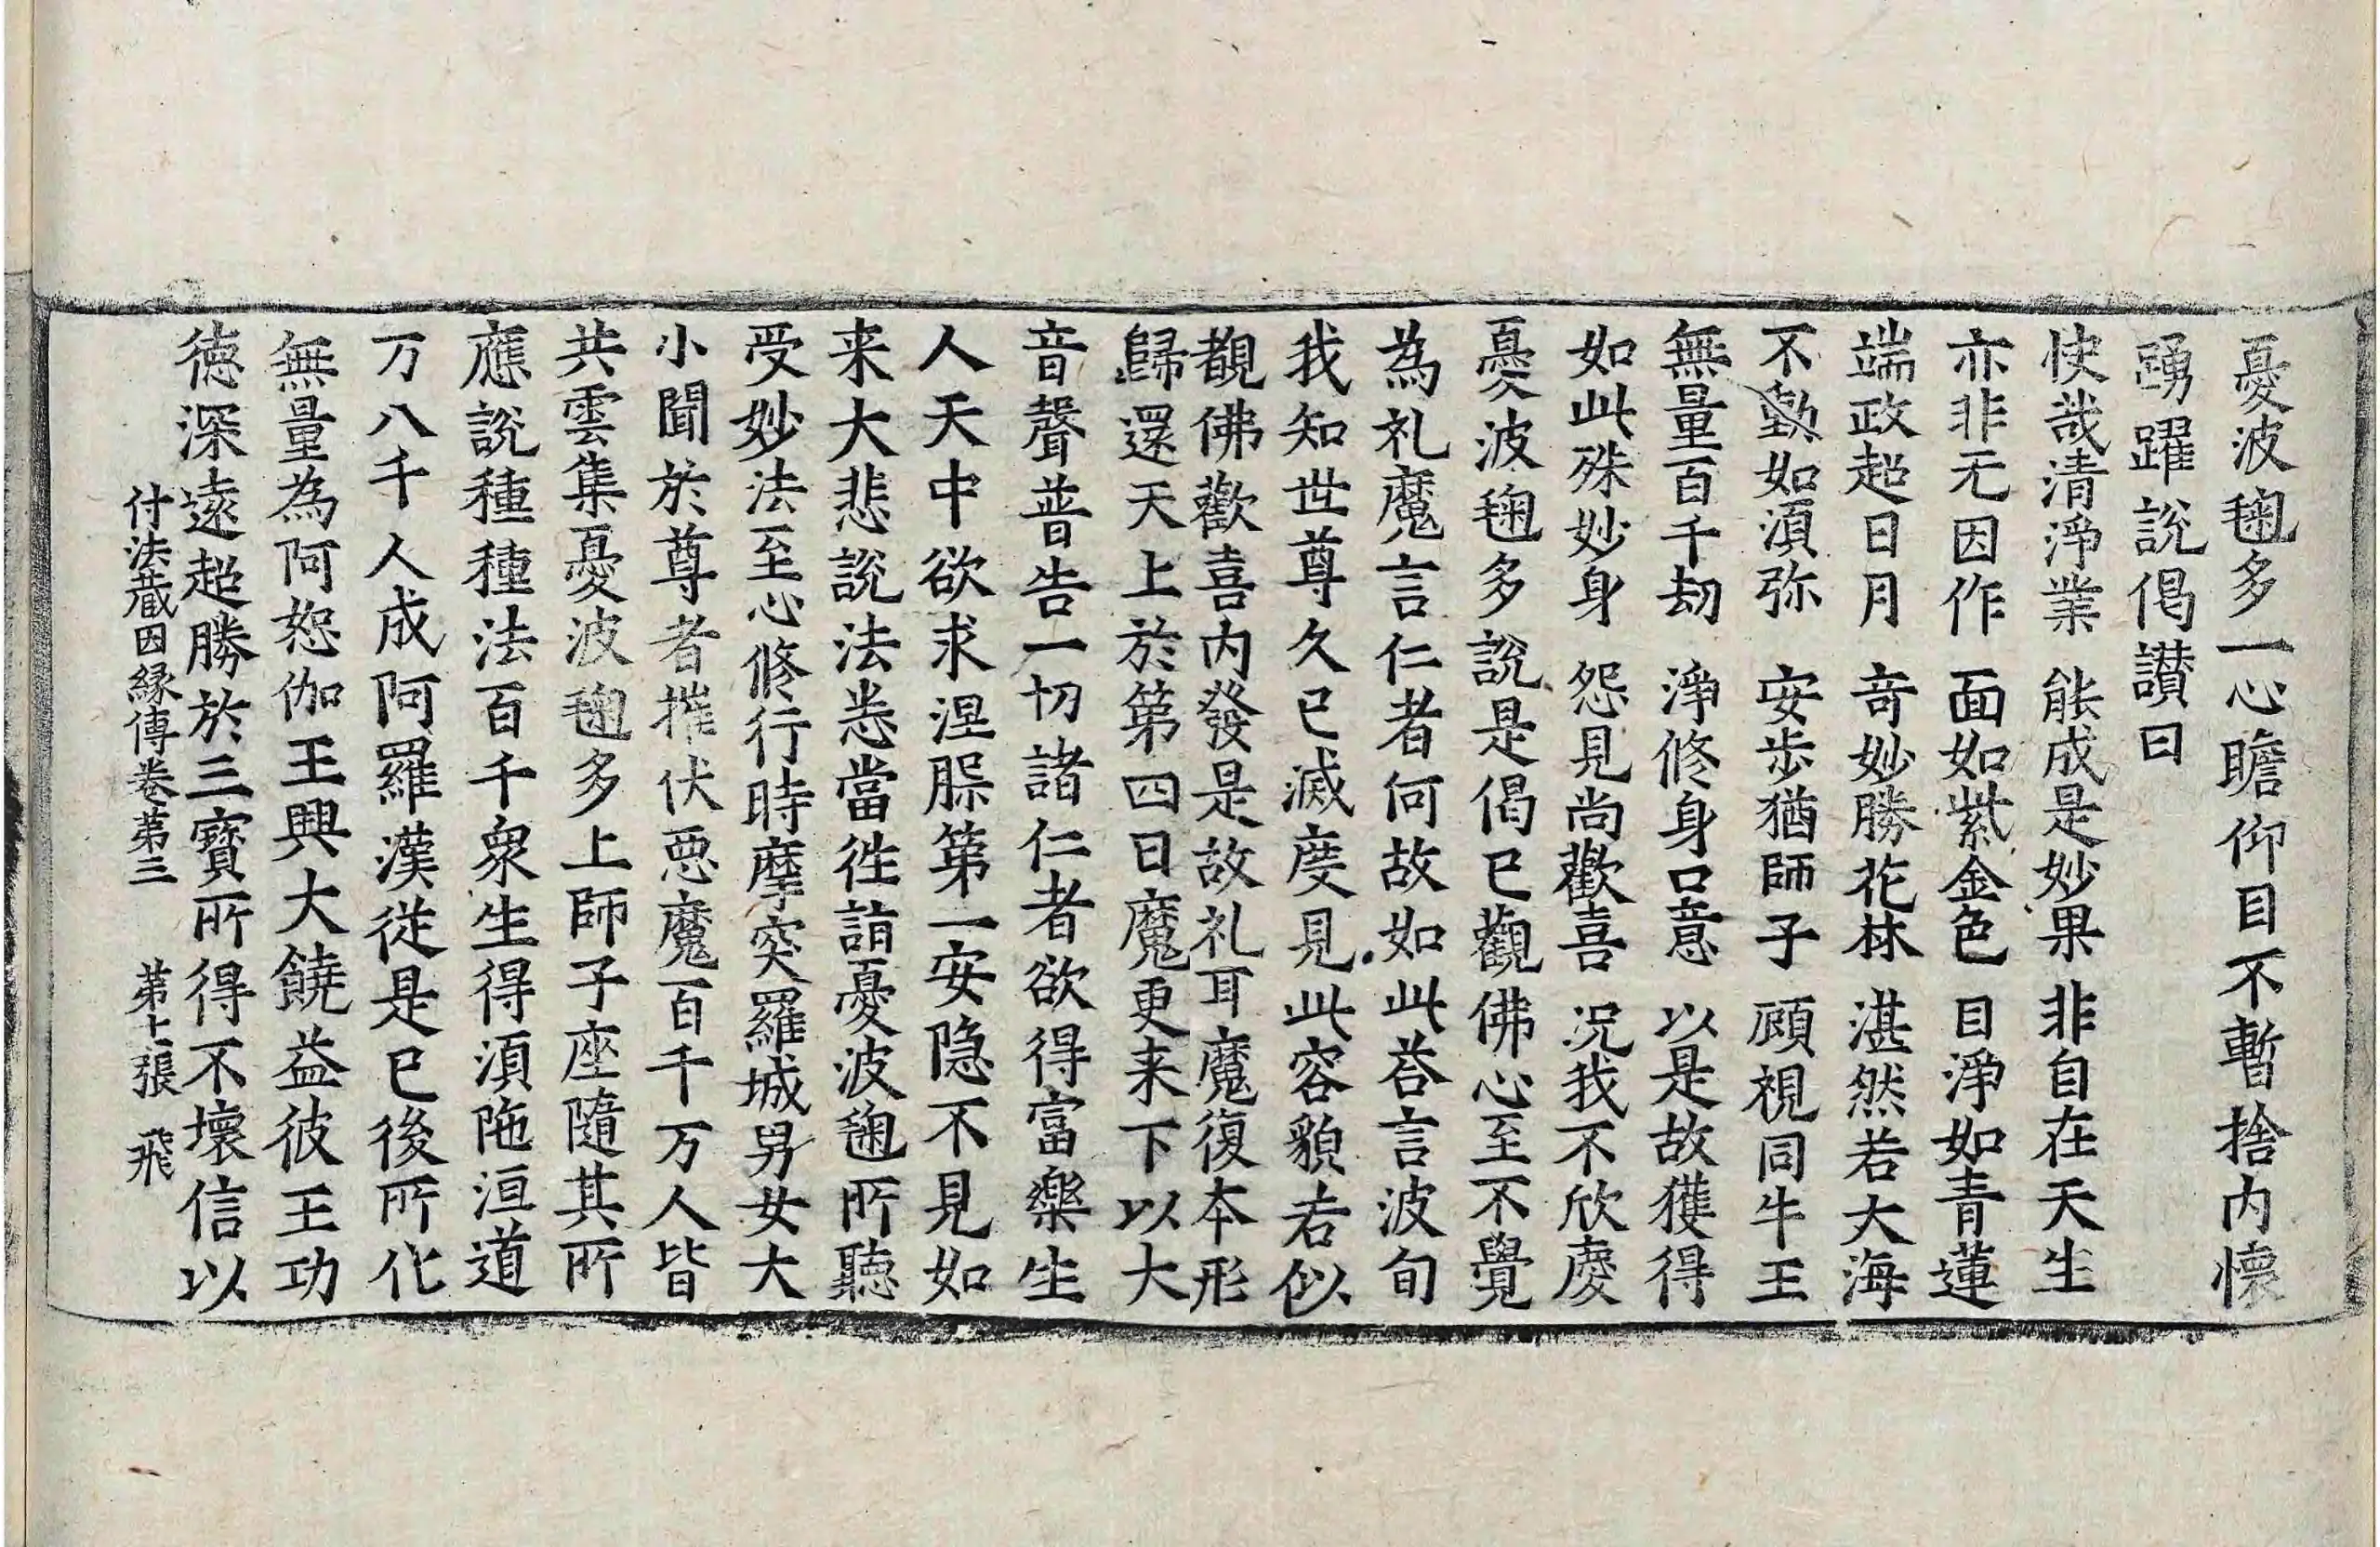 憂波毱多一心瞻仰目不暫捨内懷
踴躍說偈讃曰
快哉清淨業　能成是妙果　非自在天生
亦非无因作　面如紫金色　目淨如青蓮
端政超日月　竒妙勝花林　湛然若大海
不動如湏弥　安步猶師子　顧視同牛王
無量百千劫　淨修身口意　以是故獲得
如此殊妙身　怨見尚歡喜　况我不欣慶
憂波毱多說是偈已觀佛心至不覺
為礼魔言仁者何故如此荅言波旬
我知世尊久已滅度見此容䫉若似
覩佛歡喜内發是故礼耳魔復本形
歸還天上於第四日魔更来下以大
音聲普告一切諸仁者欲得富樂生
人天中欲求涅槃第一安隐不見如
来大悲說法悉當徃詣憂波毱所聽
受妙法至心修行時摩突羅城男女大
小聞於尊者摧伏惡魔百千万人皆
共雲集憂波毱多上師子座隨其所
應說種種法百千衆生得湏陁洹道
万八千人成阿羅漢從是已後所化
無量為阿恕伽王興大饒益彼王功
德深遠超勝於三寶所得不壞信以
付法藏因縁傳卷第三　第七張　飛